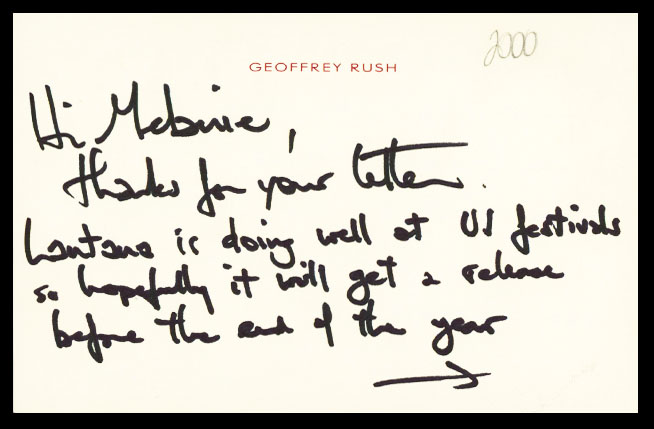 2000
GEOFFREY RUSH
Hi
thanks for your letter.
Lantana is doing well at US festivals
so hopefully it will get a release
before the end of the year
→